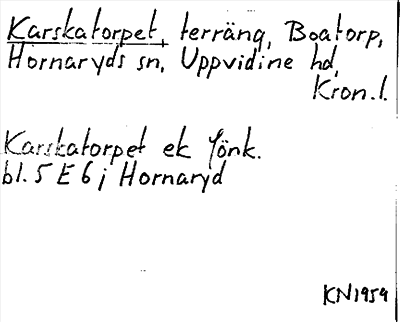 Karskatorpet, terräng, Boatorp,
Hornaryds sn, Uppvidine hd,
Kron.l.
Karskatorpet ek Jönk.
bl. 5 E 6 j Hornaryd
KN1959